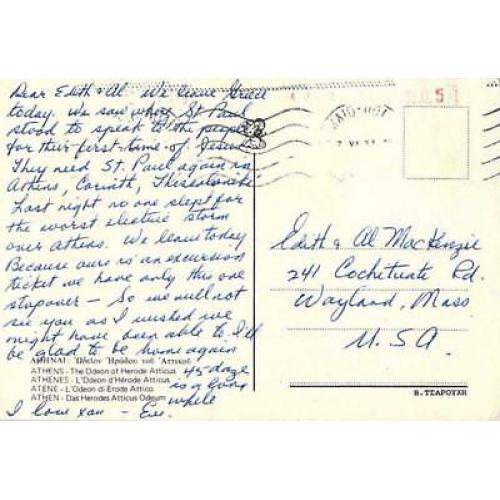 Dear Edith & Al We leave Greece
today. We saw where St Paul
stood to speak to the people
for their first time of Jesus
They need St. Paul again in
Athens, Corinth, Thessaloniki
Last night no one slept for
the worst electric storm
over Athens. We leave today
Because ours is an excursion
ticket we have only this one
stopover — So we will not
see you as I wished we
might have been able to. I'll
be glad to be home again
45 days
is a long
while
I love you - Eve.
ΑΘΗΝΑΙ: Ὠδεῖον Ἡρώδου τοῦ Ἀττικοῦ
ATHENS - The Odeon of Herode Atticus
ATHENES - L'Odeon d'Hérode Atticus
ATENE - L'Odeon di Erode Attico
ATHEN - Das Herodes Atticus Odeum
Edith & Al MacKenzie
241 Cochituate Rd.
Wayland, Mass
U.S.A.
Β. ΤΣΑΡΟΥΧΗ